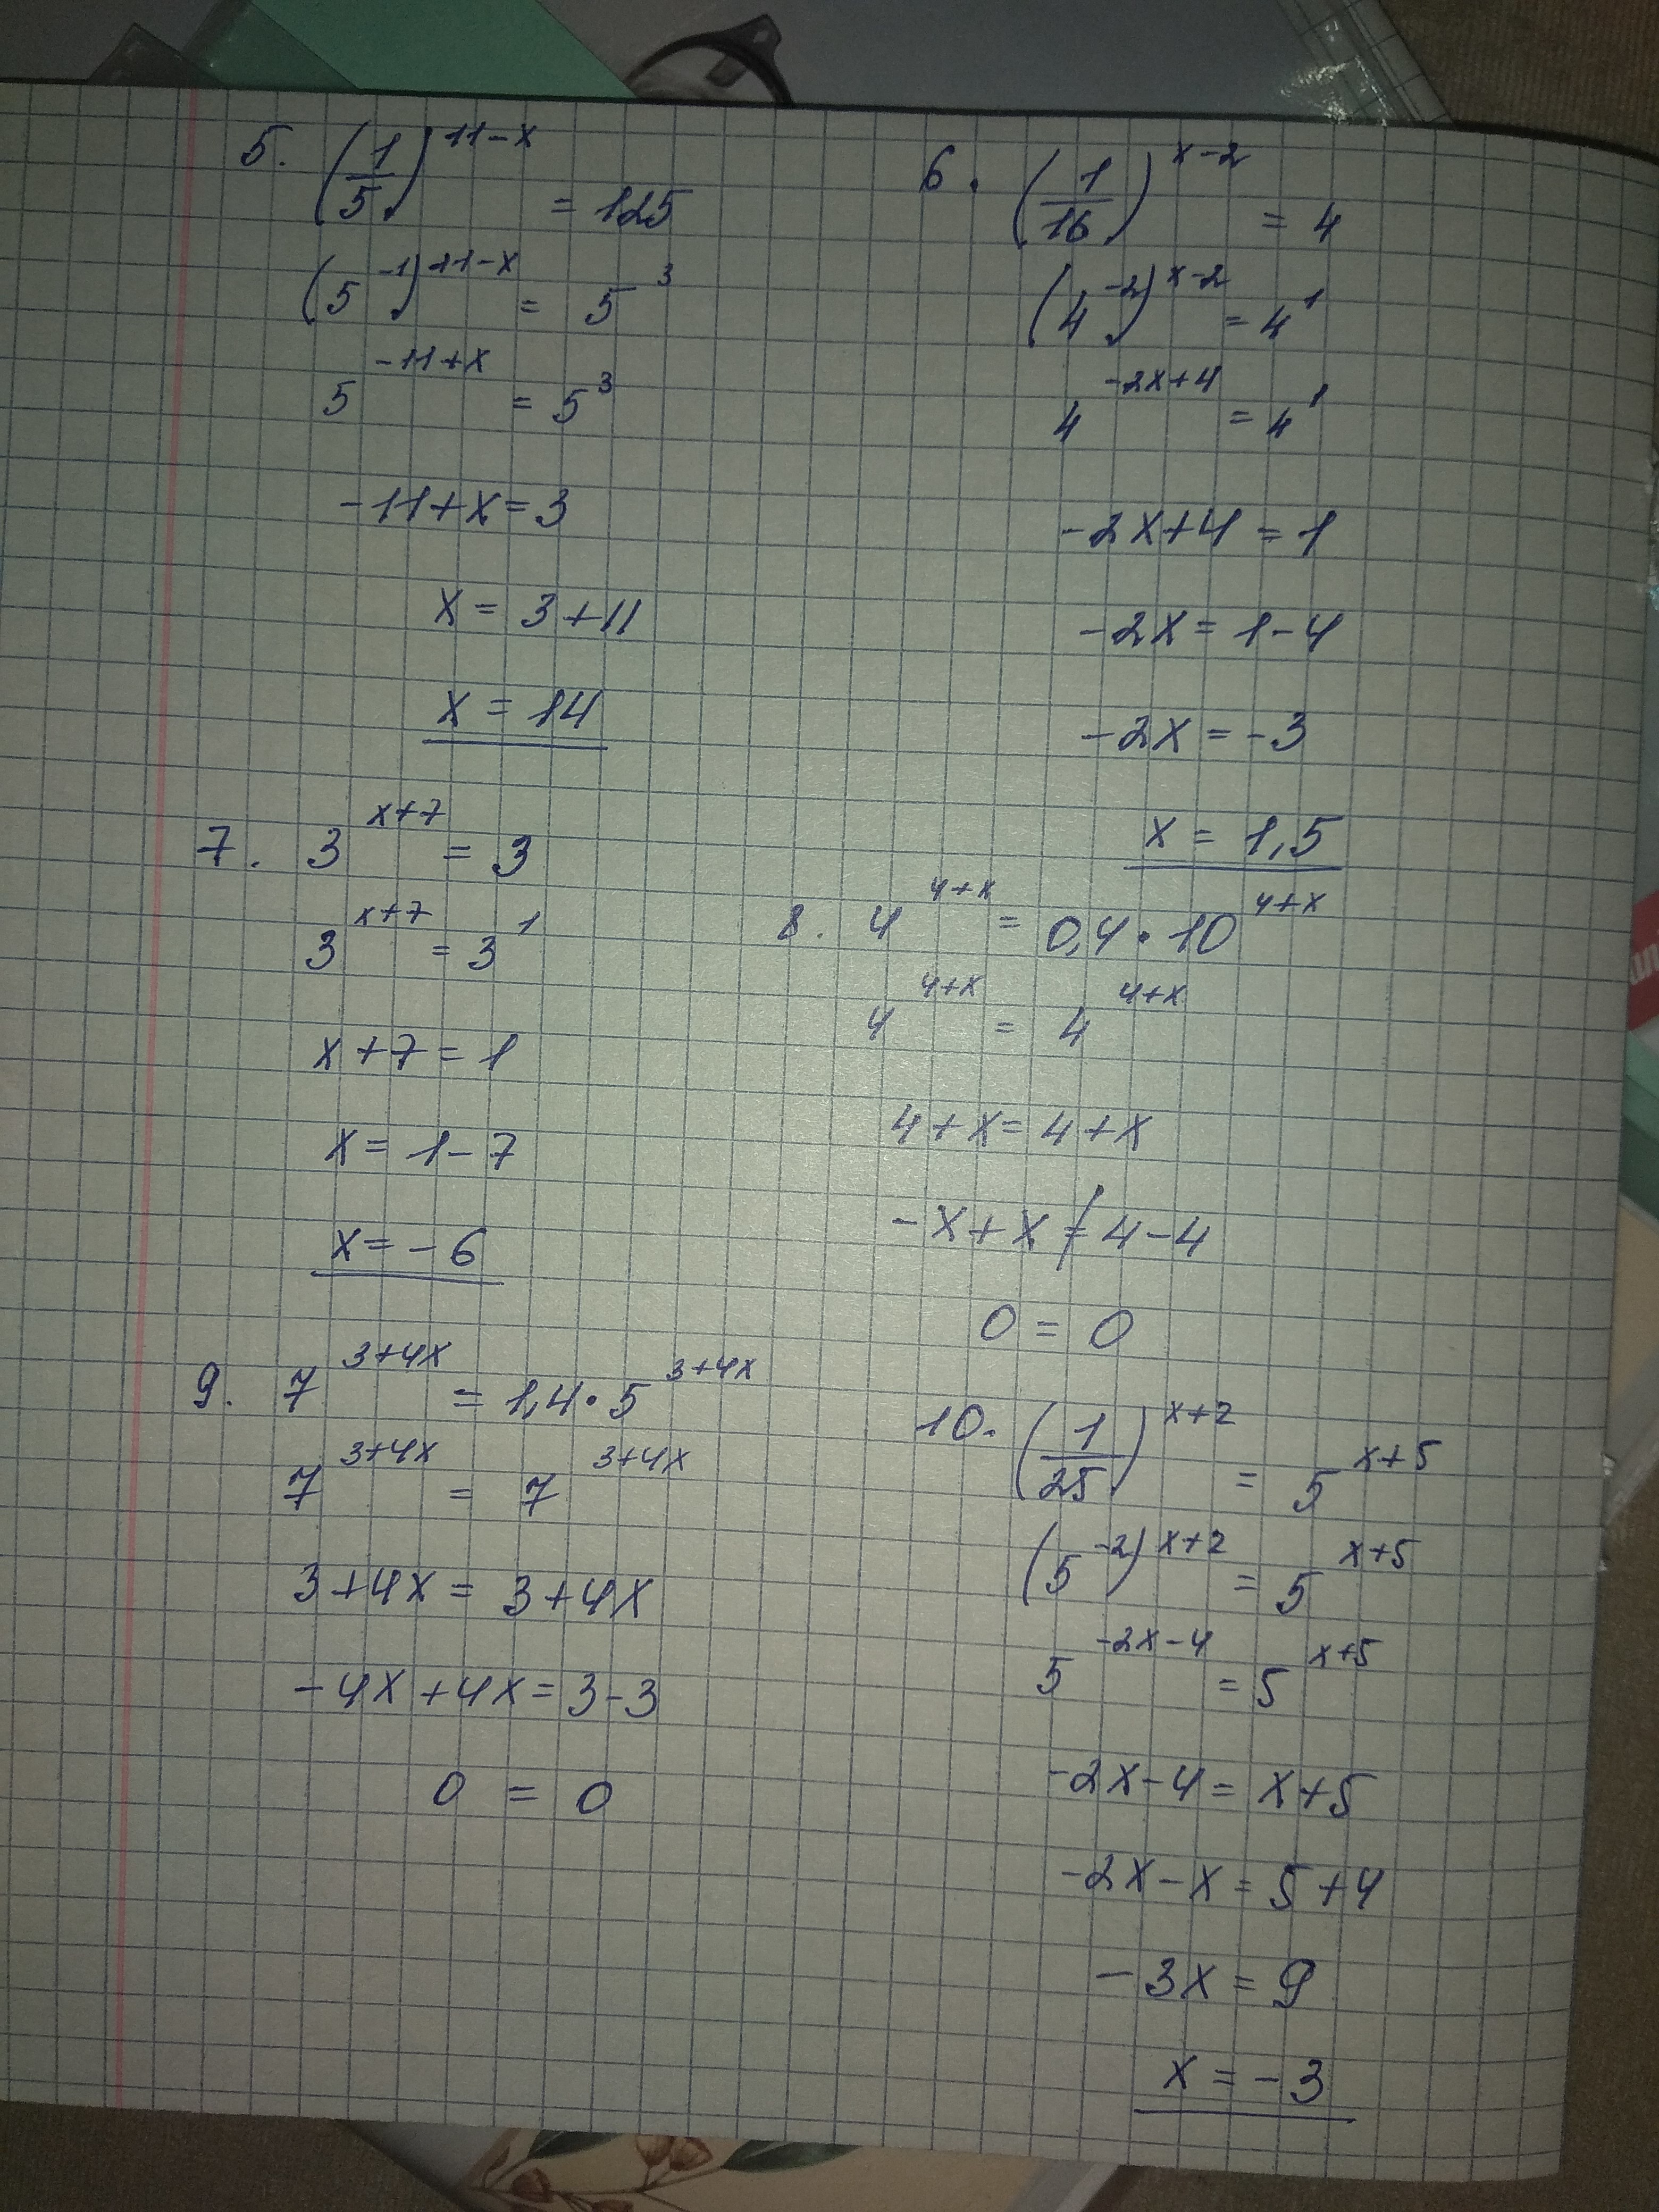 5. (1/5)^(11-x) = 125
(5^-1)^(11-x) = 5^3
5^(-11+x) = 5^3
-11+x=3
x = 3+11
x = 14
6. (1/16)^(x-2) = 4
(4^-2)^(x-2) = 4^1
4^(-2x+4) = 4^1
-2x+4 = 1
-2x = 1-4
-2x = -3
x = 1,5
7. 3^(x+7) = 3
3^(x+7) = 3^1
x+7=1
x= 1-7
x= -6
8. 4^(4+x) = 0,4·10^(4+x)
4^(4+x) = 4^(4+x)
4+x=4+x
-x+x≠4-4
0 = 0
9. 7^(3+4x) = 1,4·5^(3+4x)
7^(3+4x) = 7^(3+4x)
3+4x = 3+4x
-4x+4x=3-3
0 = 0
10. (1/25)^(x+2) = 5^(x+5)
(5^-2)^(x+2) = 5^(x+5)
5^(-2x-4) = 5^(x+5)
-2x-4= x+5
-2x-x= 5+4
-3x = 9
x = -3